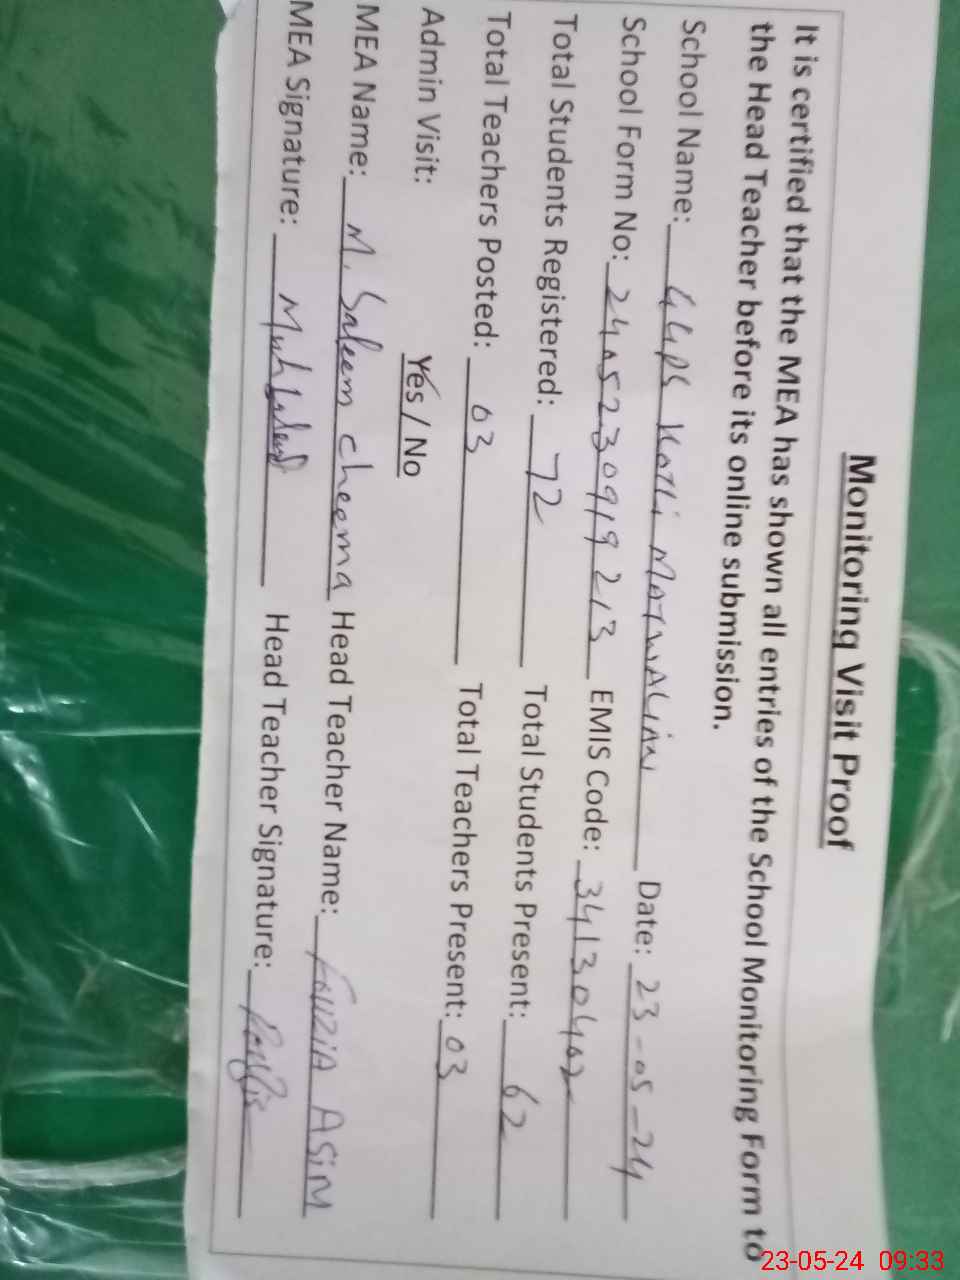 Monitoring Visit Proof
It is certified that the MEA has shown all entries of the School Monitoring Form to
the Head Teacher before its online submission.
School Name: GGPS Kotli MatwALiAN Date: 23-05-24
School Form No: 2405230919213 EMIS Code: 34130402
Total Students Registered: 72 Total Students Present: 62
Total Teachers Posted: 03 Total Teachers Present: 03
Admin Visit: Yes / No
MEA Name: M. Saleem cheema Head Teacher Name: FAUZIA ASiM
MEA Signature: Head Teacher Signature:
23-05-24 09:33